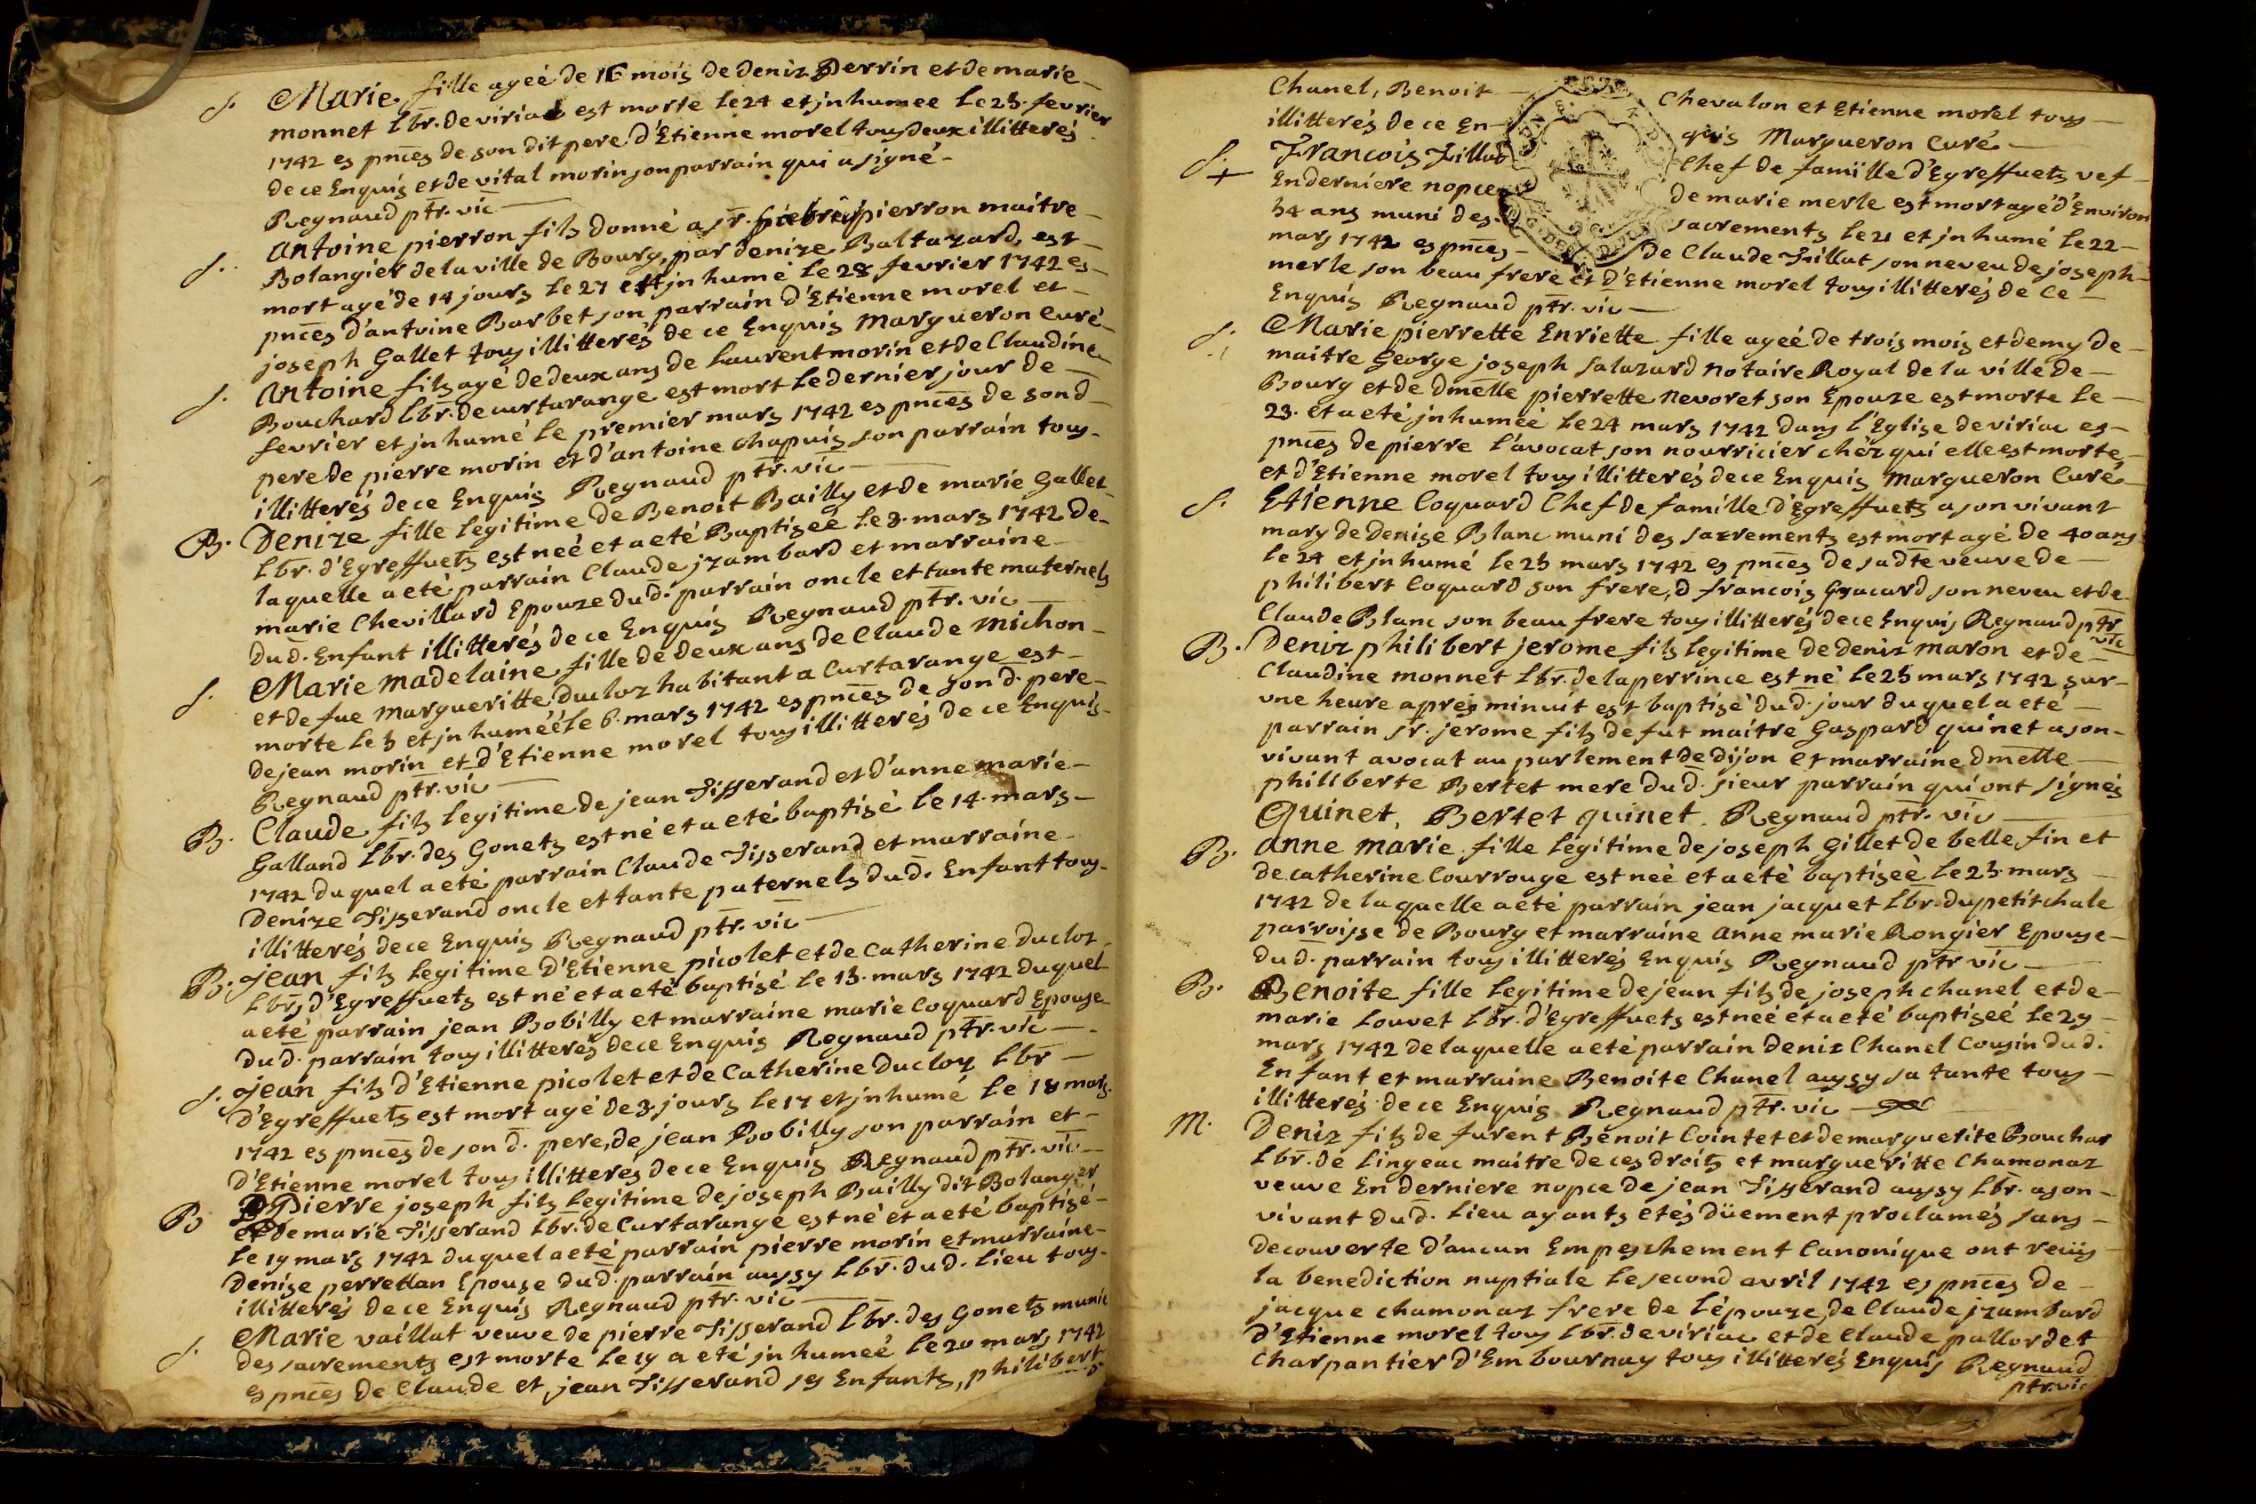 S. Marie fille ageé de 16 mois de Deniz Perrin et de marie
monnet Lbr. de viriac est morte le 24 et jnhumee le 25. fevrier
1742 es pnces de son dit pere d'Etienne morel tous deux illitterés
de ce Enquis et de vital morin son parrain qui a signé
Regnaud ptr. vic
S. Antoine pierron fils donné a sr. pierron maitre
Bolangier de la ville de Bourg, par denize Baltazard, est
mort agé de 14 jours le 27 et jnhumé le 28 fevrier 1742 es
pnces d'antoine Barbet son parrain d'Etienne morel et
joseph Gallet tous illitterés de ce Enquis Margueron Curé
S. Antoine fils agé de deux ans de Laurent morin et de Claudine
Bouchard Lbr. de curtarange est mort le dernier jour de
fevrier et jnhumé le premier mars 1742 es pnces de son d
pere de pierre morin et d'antoine Chapuis son parrain tous
illitterés de ce Enquis Regnaud ptr. vic
B. Denize fille legitime de Benoit Bailly et de marie Gallet
Lbr. d'Egreffuets est neé et a eté Baptiseé le 3. mars 1742 de
laquelle a eté parrain Claude jzambard et marraine
marie Chevillard Epouze du d. parrain oncle et tante maternels
du d. Enfant illitterés de ce Enquis Regnaud ptr. vic
S. Marie madelaine fille de deux ans de Claude Michon
et de fue Margueritte Ducloz habitant a Curtarange est
morte le 5 et jnhumeé le 6. mars 1742 es pnces de son d. pere
de jean morin et d'Etienne morel tous illitterés de ce Enquis
Regnaud ptr. vic
B. Claude fils legitime de jean Tisserand et d'anne marie
Galland Lbr. des Gonets est né et a eté baptisé le 14. mars
1742 duquel a eté parrain Claude Tisserand et marraine
Denize Tisserand oncle et tante paternels du d. Enfant tous
illitterés de ce Enquis Regnaud ptr. vic
B. jean fils legitime d'Etienne picolet et de Catherine Ducloz
Lbrs d'Egreffuets est né et a eté baptisé le 15. mars 1742 duquel
a eté parrain jean Bobilly et marraine marie Coquard Epouse
du d. parrain tous illitterés de ce Enquis Regnaud ptr. vic
S. jean fils d'Etienne picolet et de Catherine Ducloz Lbr
d'Egreffuets est mort agé de 3. jours le 17 et jnhumé le 18 mars
1742 es pnces de son d. pere, de jean Bobilly son parrain et
d'Etienne morel tous illitteres de ce Enquis Regnaud ptr. vic
B Pierre joseph fils legitime de joseph Bailly dit Bolanger
et de marie Tisserand Lbr. de Curtarange est né et a eté baptisé
le 19 mars 1742 duquel a eté parrain pierre morin et marraine
Denise perretlan Epouse du d. parrain aussy Lbr. du d. lieu tous
illitterés de ce Enquis Regnaud ptr. vic
S. Marie vaillat veuve de pierre Tisserand Lbr. des Gonets munie
des sacrements est morte le 19 a eté jnhumeé le 20 mars 1742
es pnces de Claude et jean Tisserand ses Enfants, philibert
Chanel, Benoit Chevalon et Etienne morel tous
illitterés de ce Enquis Margueron Curé
S. Francois Fillat Chef de famille d'Egreffuets vef
En derniere nopce de marie merle est mort agé d'Environ
54 ans muni des sacrements le 21 et jnhumé le 22
mars 1742 es pnces de Claude Fillat son neveu de joseph
merle son beau frere et d'Etienne morel tous illitterés de ce
Enquis Regnaud ptr. vic
S. Marie pierrette Enriette fille ageé de trois mois et demy de
maitre George joseph Salazard Notaire Royal de la ville de
Bourg et de dmelle pierrette Nevoret son Epouze est morte le
23. et a eté jnhumeé le 24 mars 1742 dans l'Eglise de viriac es
pnces de pierre l'avocat son nourricier chéz qui elle est morte
et d'Etienne morel tous illitterés de ce Enquis Margueron Curé
S. Etienne Coquard Chef de famille d'Egreffuets a son vivant
mary de Denise Blanc muni des sacrements est mort agé de 40 ans
le 24 et jnhumé le 25 mars 1742 es pnces de sadte veuve de
philibert Coquard son frere, d francois Gracard son neveu et de
Claude Blanc son beau frere tous illitterés de ce Enquis Regnaud ptr
vic
B. Deniz philibert jerome fils legitime de Deniz maron et de
Claudine monnet Lbr. de la perrince est né le 25 mars 1742 sur
vne heure aprés minuit est baptisé du d. jour duquel a eté
parrain sr. jerome fils de fut maitre Gaspard quinet a son
vivant avocat au parlement de dijon et marraine dmelle
philiberte Bertet mere du d. sieur parrain qui ont signés
Quinet, Bertet quinet. Regnaud ptr. vic
B. Anne marie fille legitime de joseph Gillet de belle fin et
de catherine Courrouge est neé et a eté baptiseé le 25. mars
1742 de laquelle a eté parrain jean jacquet Lbr. du petit chale
parroisse de Bourg et marraine anne marie Rongier Epouse
du d. parrain tous illitterés Enquis Regnaud ptr vic
B. Benoite fille legitime de jean fils de joseph chanel et de
marie Louvet Lbr. d'Egreffuets est neé et a eté baptiseé le 29
mars 1742 de laquelle a eté parrain Deniz Chanel Cousin du d.
Enfant et marraine Benoite Chanel aussy sa tante tous
illitterés de ce Enquis Regnaud ptr. vic
M. Deniz fils de furent Benoit Cointet et de marguerite Bouchar
Lbr. de Lingeac maitre de ces droits et margueritte Chamonaz
veuve En derniere nopce de jean Tisserand aussy Lbr. a son
vivant du d. lieu ayants etés düement proclamés sans
decouverte d'aucun Empeschement Canonique ont reüs
la benediction nuptiale le second avril 1742 es pnces de
jacque chamonaz frere de l'épouze, de Claude jzambard
d'Etienne morel tous Lbr. de viriac et de Claude pallordet
Charpantier d'Embournay tous illitterés Enquis Regnaud
ptr. vic